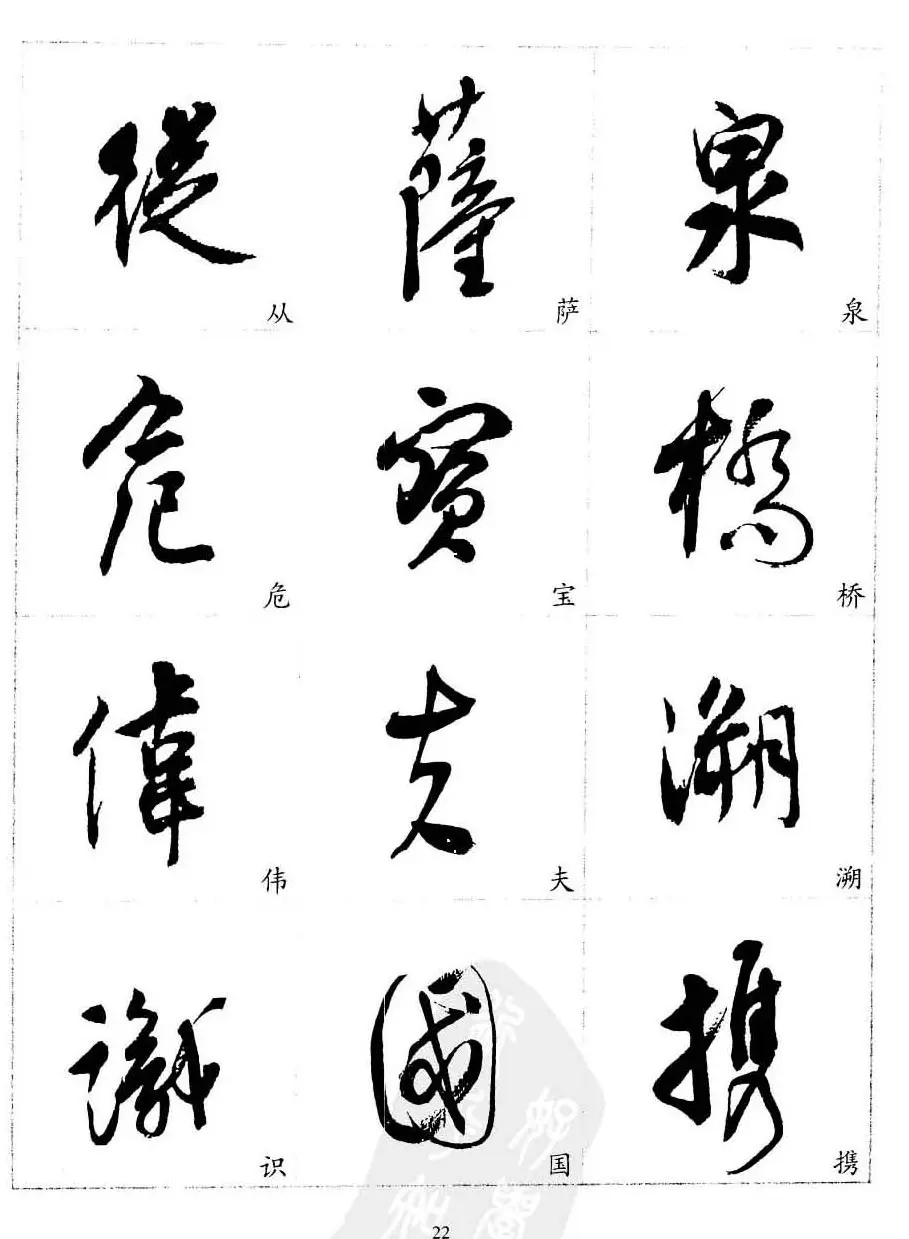 從 薩 泉
从 萨 泉
危 寳 橋
危 宝 桥
偉 夫 溯
伟 夫 溯
識 國 携
识 国 携
22